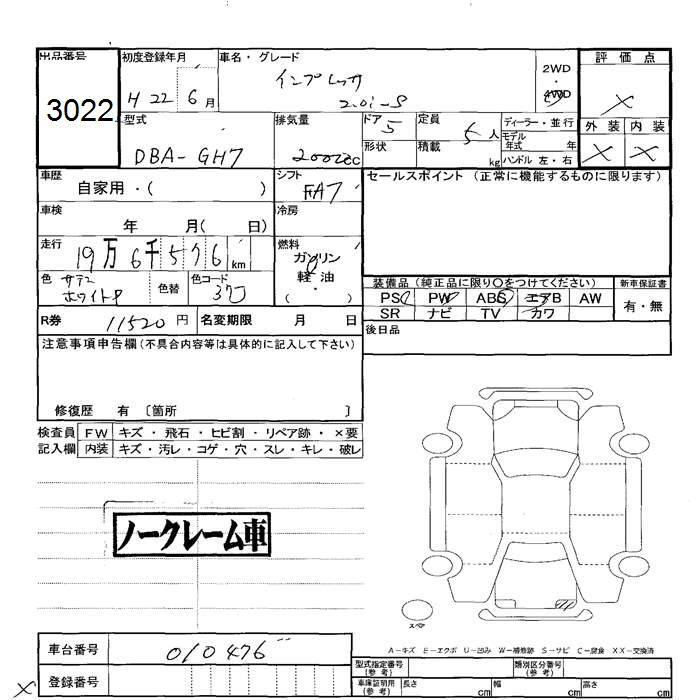 出品番号
3022
初度登録年月
H 22 6月
車名・グレード
インプレッサ
2.0i-S
2WD
4WD
評価点
×
外装 内装
× ×
型式
DBA-GH7
排気量
2000cc
ドア 5
形状
定員 5人
積載 kg
ディーラー・並行
モデル年式 年
ハンドル 左・右
車歴
自家用・( )
シフト
FA7
セールスポイント (正常に機能するものに限ります)
車検
年 月( 日)
冷房
走行
19万6千576km
燃料
ガソリン
軽油
( )
色
サテン
ホワイトP
色替
色コード
37J
装備品 (純正品に限り○をつけてください)
PS PW ABS エアB AW
SR ナビ TV カワ
新車保証書
有・無
R券 11520円
名変期限 月 日
後日品
注意事項申告欄(不具合内容等は具体的に記入して下さい)
修復歴 有 〔箇所 〕
検査員 FW キズ・飛石・ヒビ割・リペア跡・×要
記入欄 内装 キズ・汚レ・コゲ・穴・スレ・キレ・破レ
ノークレーム車
スペア
A-キズ E-エクボ U-凹み W-補修跡 S-サビ C-腐食 XX-交換済
車台番号 010476
登録番号
×
型式指定番号
(参考)
類別区分番号
(参考)
車庫証明用
(参考)
長さ cm 幅 cm 高さ cm